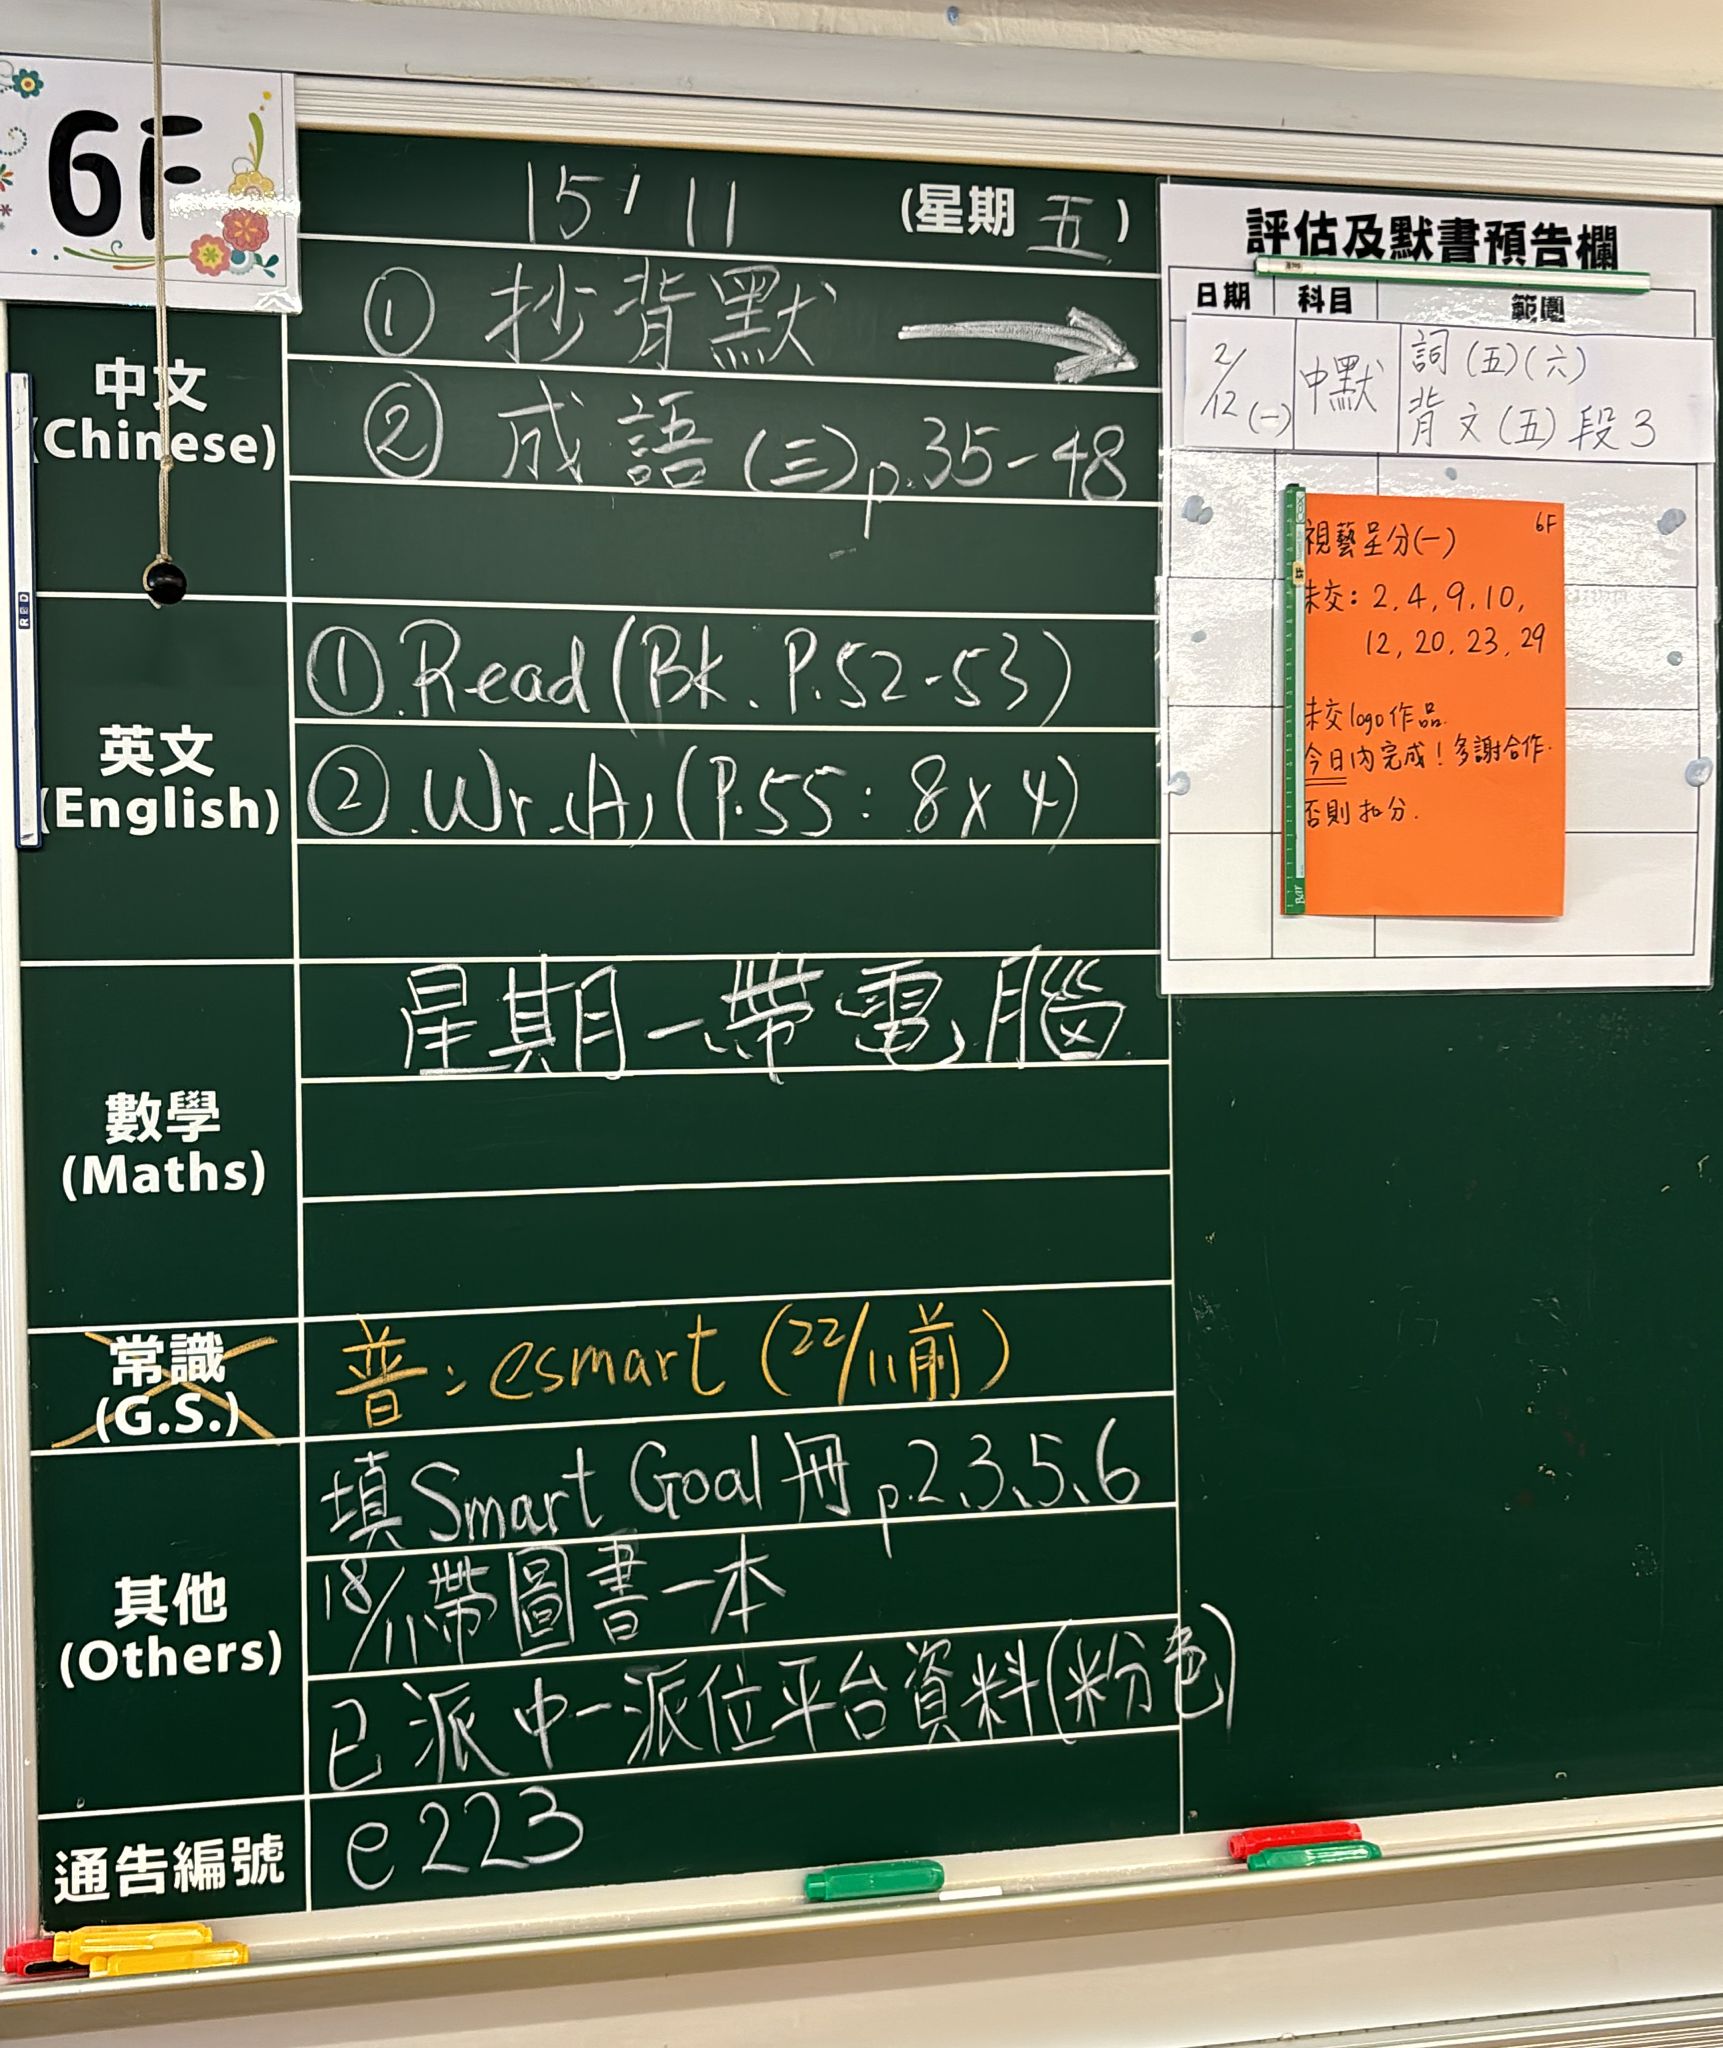 6F
15/11 (星期五)
中文
(Chinese)
① 抄背默 →
② 成語(三)p.35-48
英文
(English)
①.Read(Bk. P.52-53)
②.Wr.(A)(P.55: 8x4)
數學
(Maths)
星期一帶電腦
常識
(G.S.)
普: esmart (22/11前)
其他
(Others)
填Smart Goal冊p.2、3、5、6
18/11帶圖書一本
已派中一派位平台資料(粉色)
通告編號
e223
評估及默書預告欄
日期 科目 範圍
2/12(一) 中默 詞(五)(六)
背文(五)段3
6F
視藝呈分(一)
未交: 2, 4, 9, 10,
12, 20, 23, 29
未交logo作品.
今日內完成! 多謝合作.
否則扣分.
RED